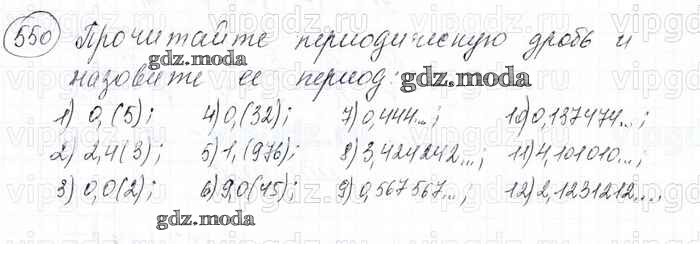 550 Прочитайте периодическую дробь и
назовите ее период:
gdz.moda gdz.moda
1) 0,(5); 4) 0,(32); 7) 0,444...; 10) 0,137474...;
2) 2,4(3); 5) 1,(976); 8) 3,424242...; 11) 4,101010...;
3) 0,0(2); 6) 9,0(45); 9) 0,567567...; 12) 2,1231212....
gdz.moda